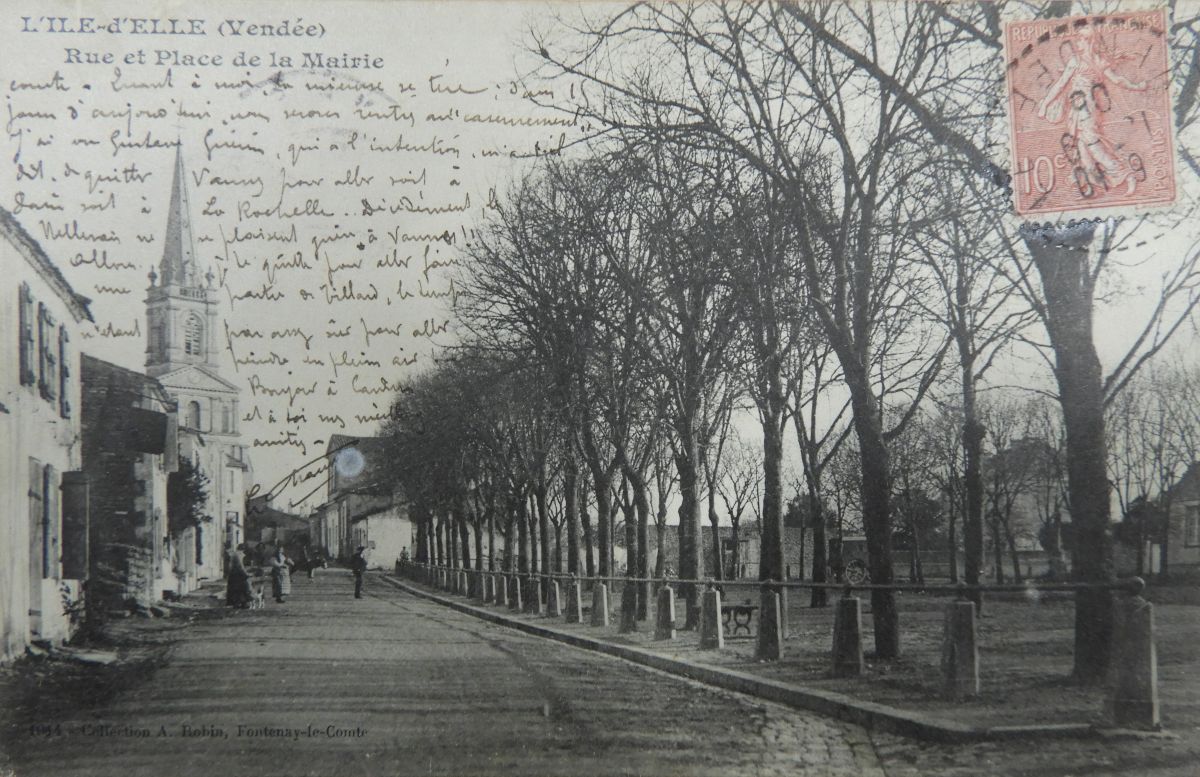 L'ILE-d'ELLE (Vendée)
Rue et Place de la Mairie
compte. Quant à moi la mienne se tire ; dans 15
jours d'aujourd'hui, nous serons rentrés au "casernement"
J'ai vu Gustave Guérin, qui a l'intention, m'a-t-il
dit, de quitter Vannes pour aller soit à
soit à La Rochelle. Décidément, les
ne se plaisent guère à Vannes !!
Allons, je te quitte pour aller faire
une partie de billard, le temps
n'étant pas assez sûr pour aller
peindre en plein air
Bonjour à
et à toi mes meilleures
amitiés
REPUBLIQUE FRANÇAISE
10c
POSTES
1914 - Collection A. Robin, Fontenay-le-Comte